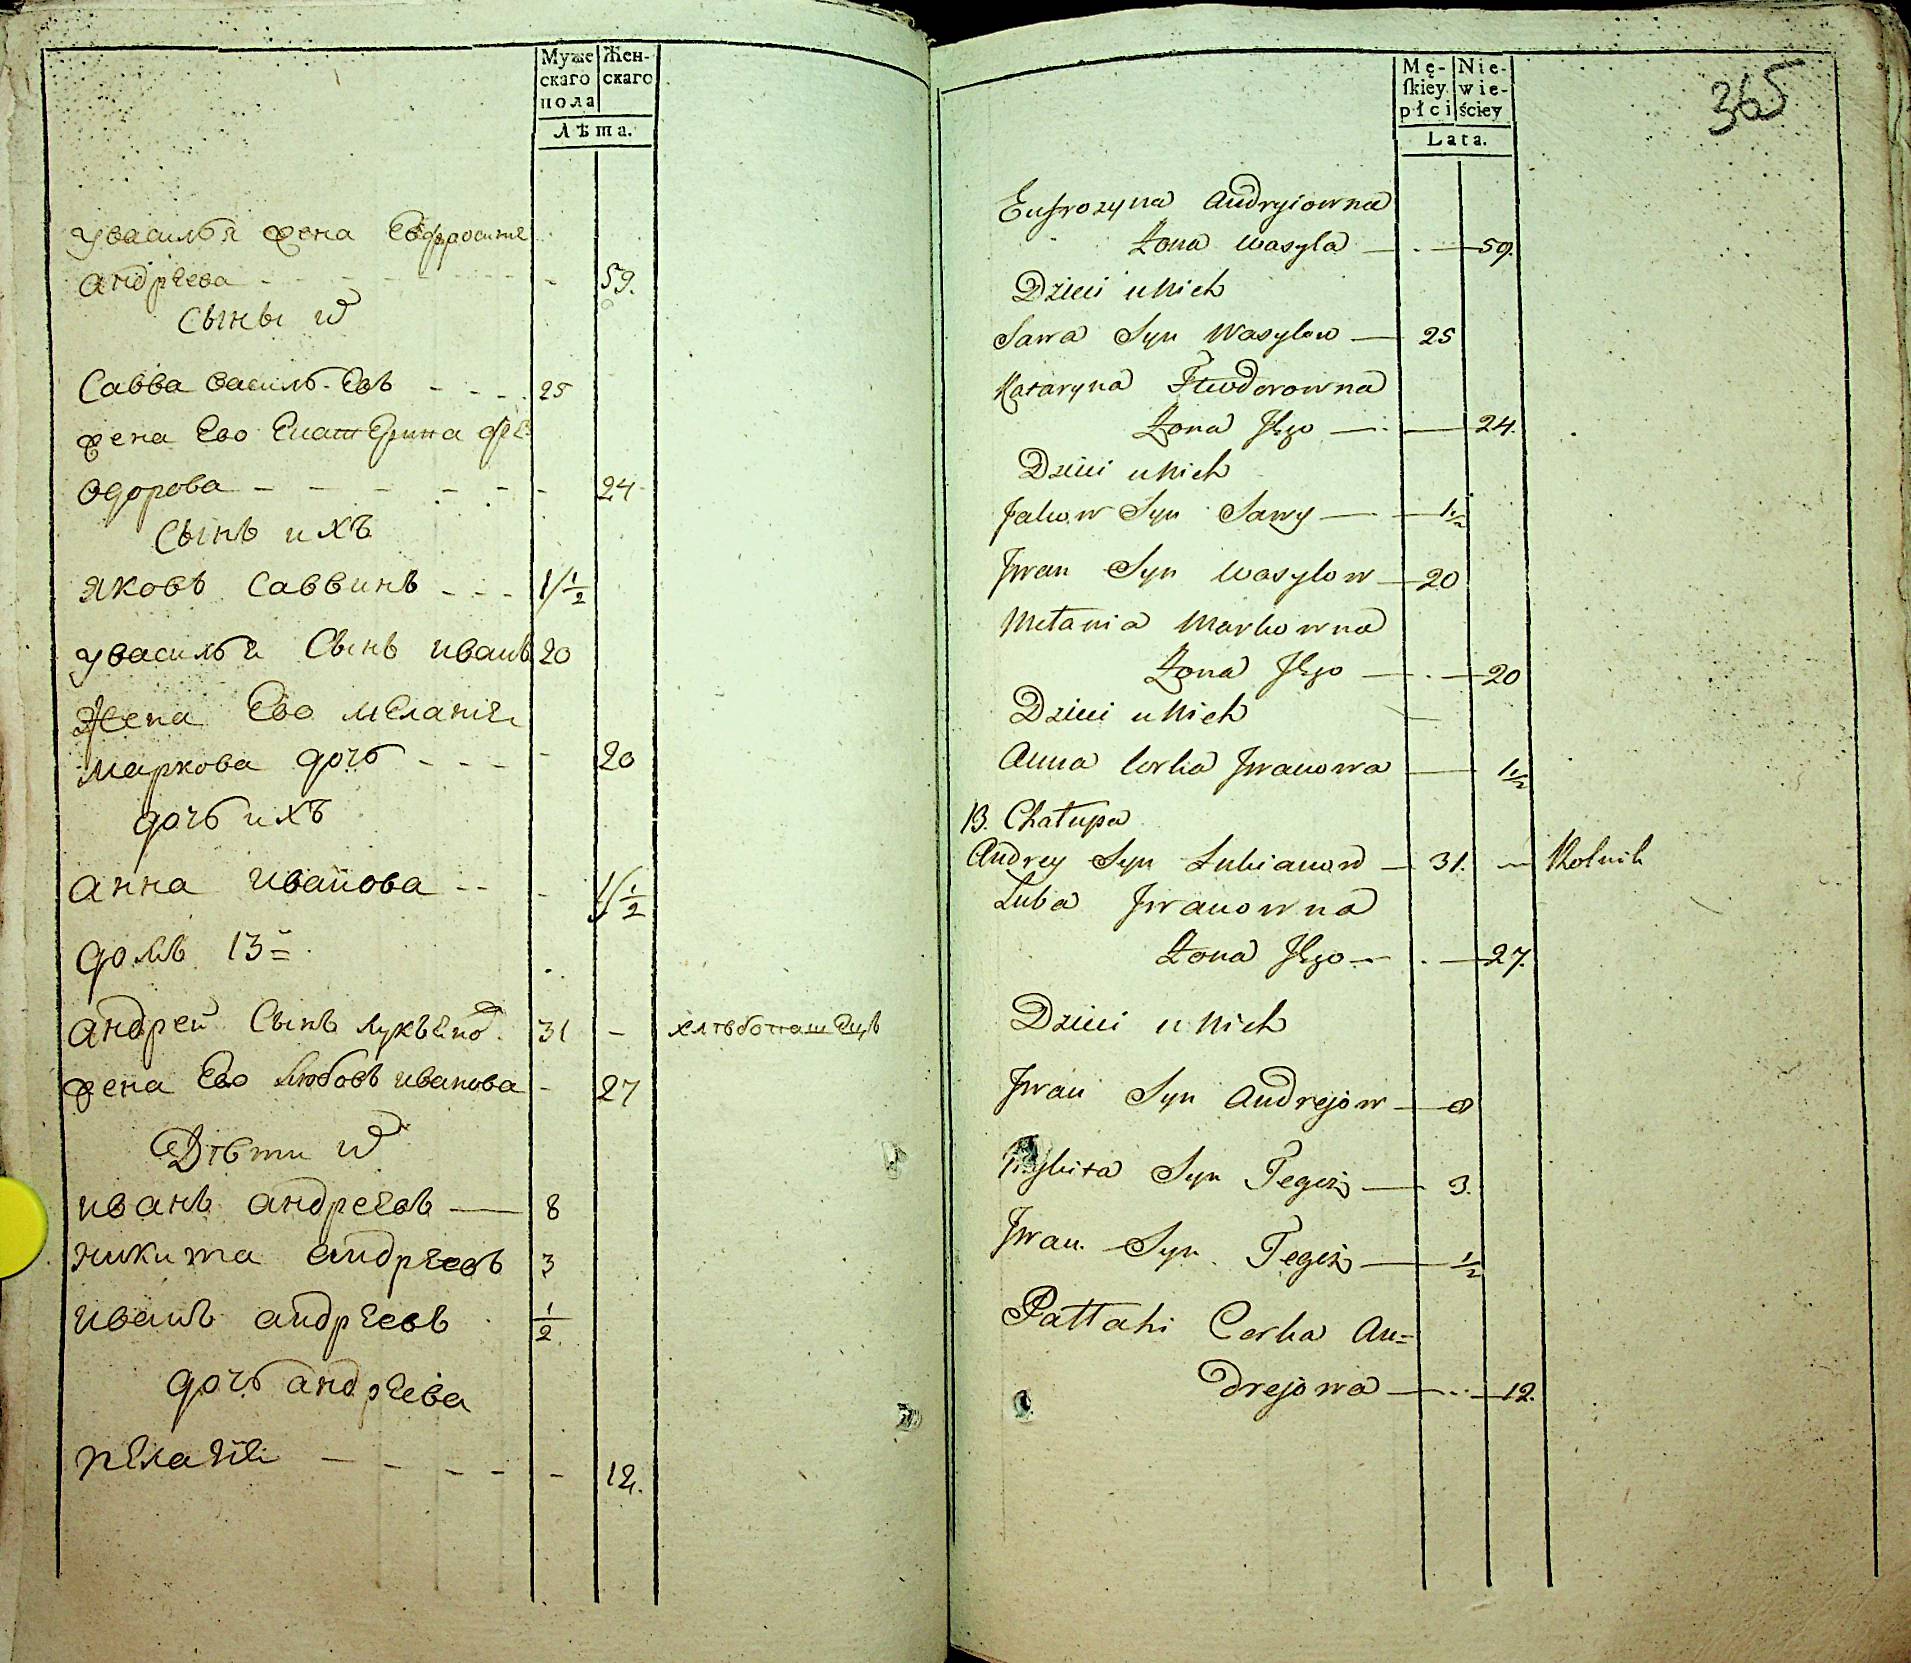 Муже Жен-
скаго скаго
пола
Лѣта.
увасилья жена Евфросинѣ
андрѣева - - 59.
Сыны и
Савва василь-евъ - - - 25
жена Ево Екатерина фе
одорова - - - - - - 24
Сынъ ихъ
яковъ саввинъ - - - 1/½
увасилья Сынъ иванъ 20
Жена Ево мелания
маркова дочь - - - - 20
дочь ихъ
анна иванова - - - 1/½
домъ 13й
андрей Сынъ лукьяно 31 - хлѣбопашецъ
жена Ево любовь иванова - 27
Дѣти и
иванъ андреевъ — 8
никита андреевъ 3
иванъ андреевъ ½
дочь андреева
пелагия - - - - - 12.
Mę- Nie-
ſkiey wie-
płci ściey
Lata.
365
Eufrozyna Andryiowna
Żona Wasyla — 59.
Dzieci u Nich
Sawa Syn Wasylow — 25
Kataryna Fiedorowna
Żona Jego — 24.
Dzieci u Nich
Jakow Syn Sawy — 1½
Jwan Syn Wasylow — 20
Mełania Markowna
Żona Jego — 20
Dzieci u Nich
Anna Corka Jwanowa — 1½
13. Chałupa
Andrey Syn Łukianow — 31. — Rolnik
Luba Jwanowna
Żona Jego — 27.
Dzieci u Nich
Jwan Syn Andrejow — 8
Mykita Syn Tegiż — 3.
Jwan Syn Tegiż — ½
Pałłahi Corka An=
drejowa — 12.